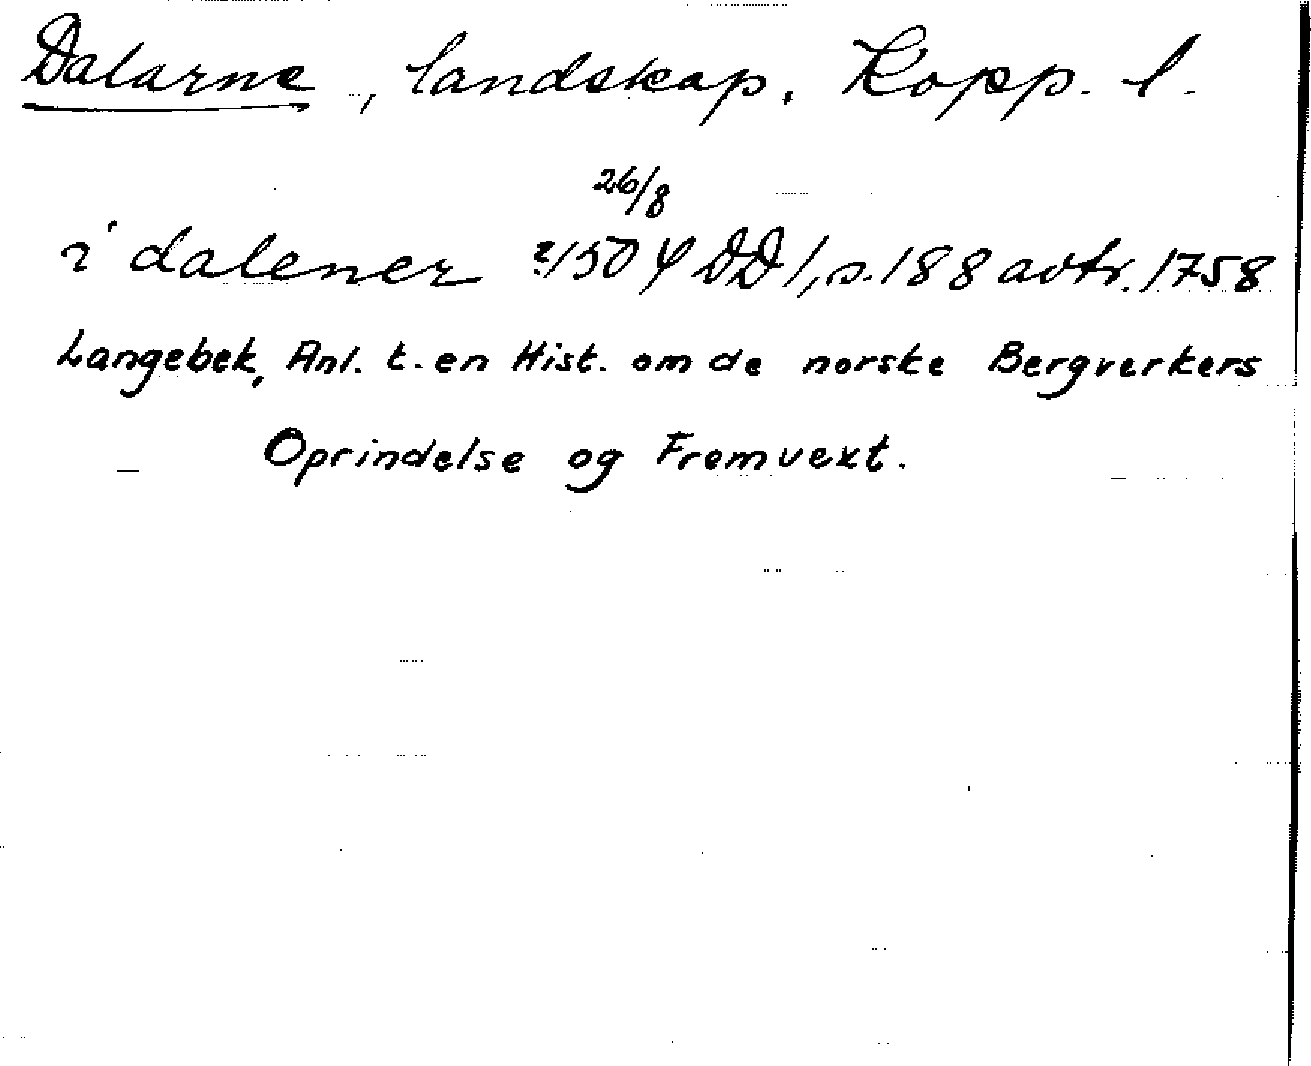 Dalarne, landskap. Kopp. l.
26/8
i dalener 2/1504 DD1, s. 188 avtr. 1758
Langebek, Anl. t. en Hist. om de norske Bergverkers
Oprindelse og Fremvext.